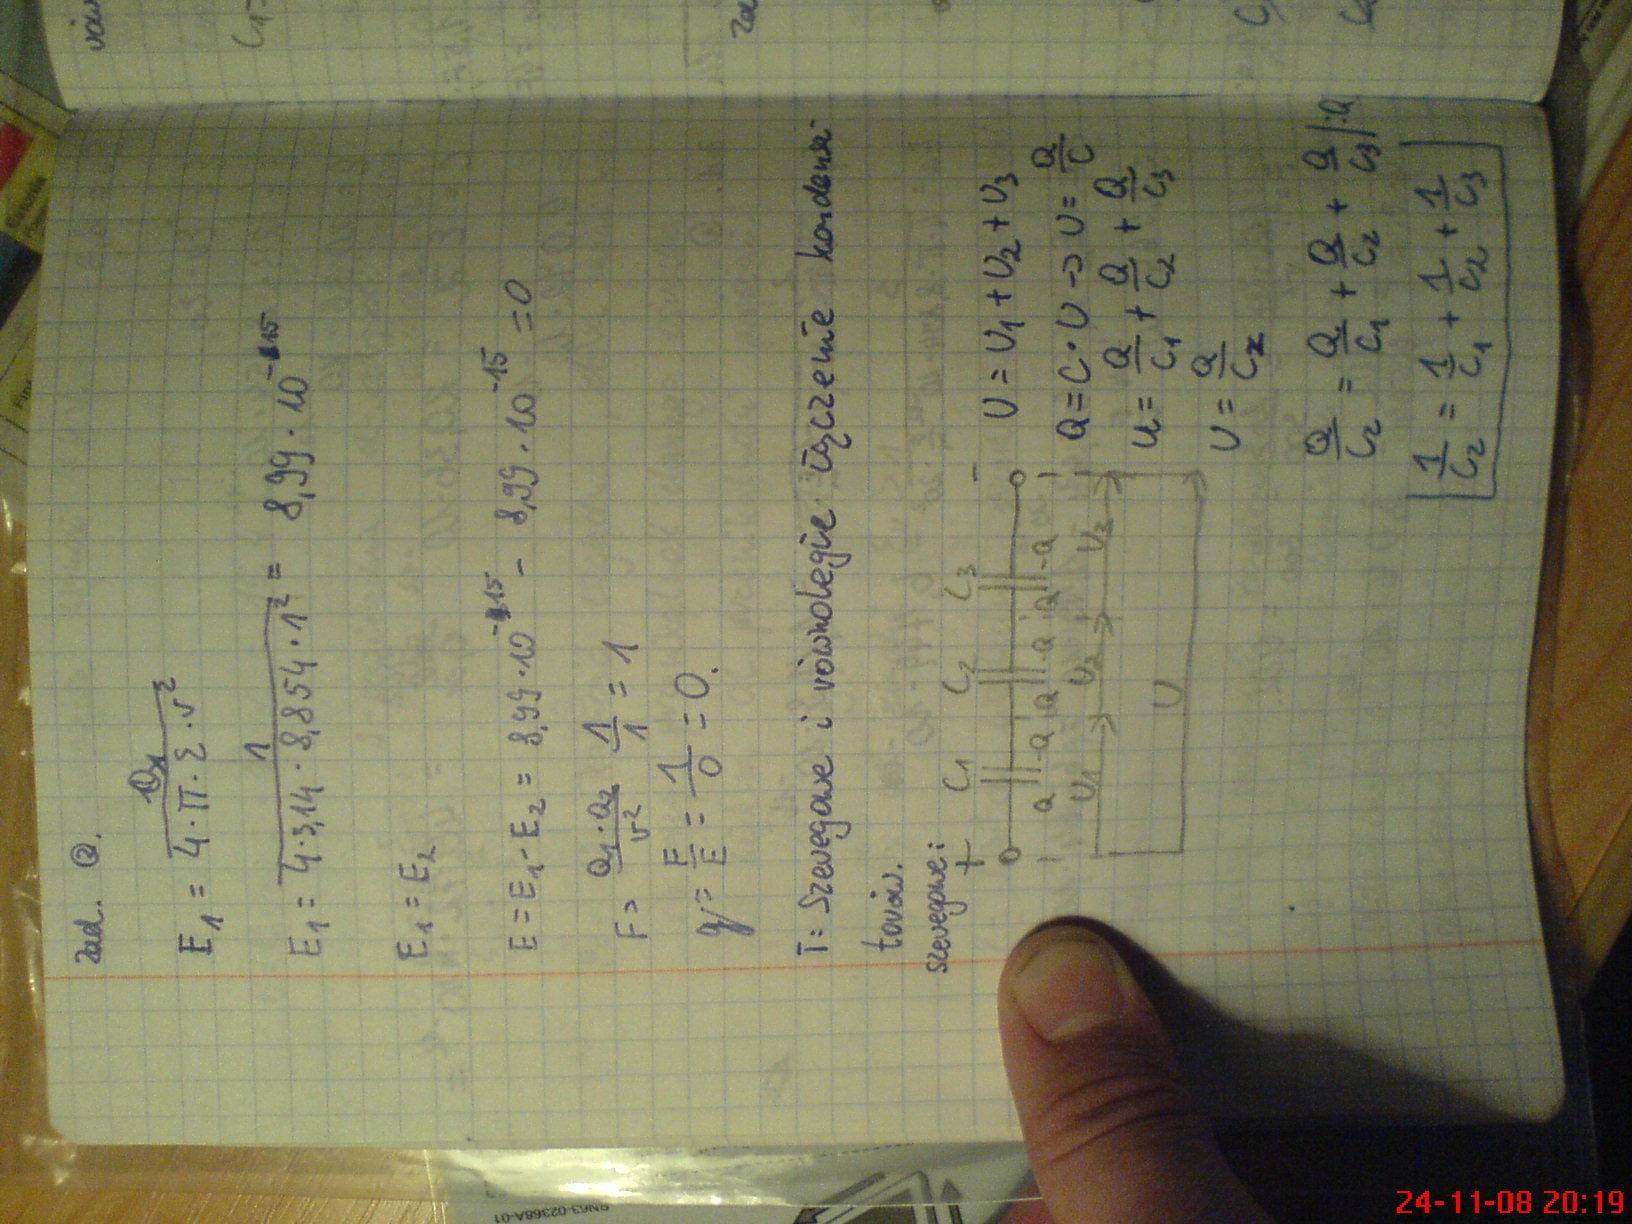 zad. 2.
E1 = Q1 / 4·Π·Σ·r²
E1 = 1 / 4·3,14·8,854·1² = 8,99·10⁻¹⁵
E1 = E2
E = E1 - E2 = 8,99·10⁻¹⁵ - 8,99·10⁻¹⁵ = 0
F = Q1·Q2 / r² 1/1 = 1
q = F/E = 1/0 = 0.
T: Szeregowe i równoległe łączenie kondensa-
torów.
szeregowe:
+ C1 C2 C3 -
Q -Q Q -Q Q -Q
U1 U2 U2
U
U = U1 + U2 + U3
Q = C·U → U = Q/C
U = Q/C1 + Q/C2 + Q/C3
U = Q/Cz
Q/Cz = Q/C1 + Q/C2 + Q/C3 |:Q
1/Cz = 1/C1 + 1/C2 + 1/C3
BN63-02368A-01
24-11-08 20:19